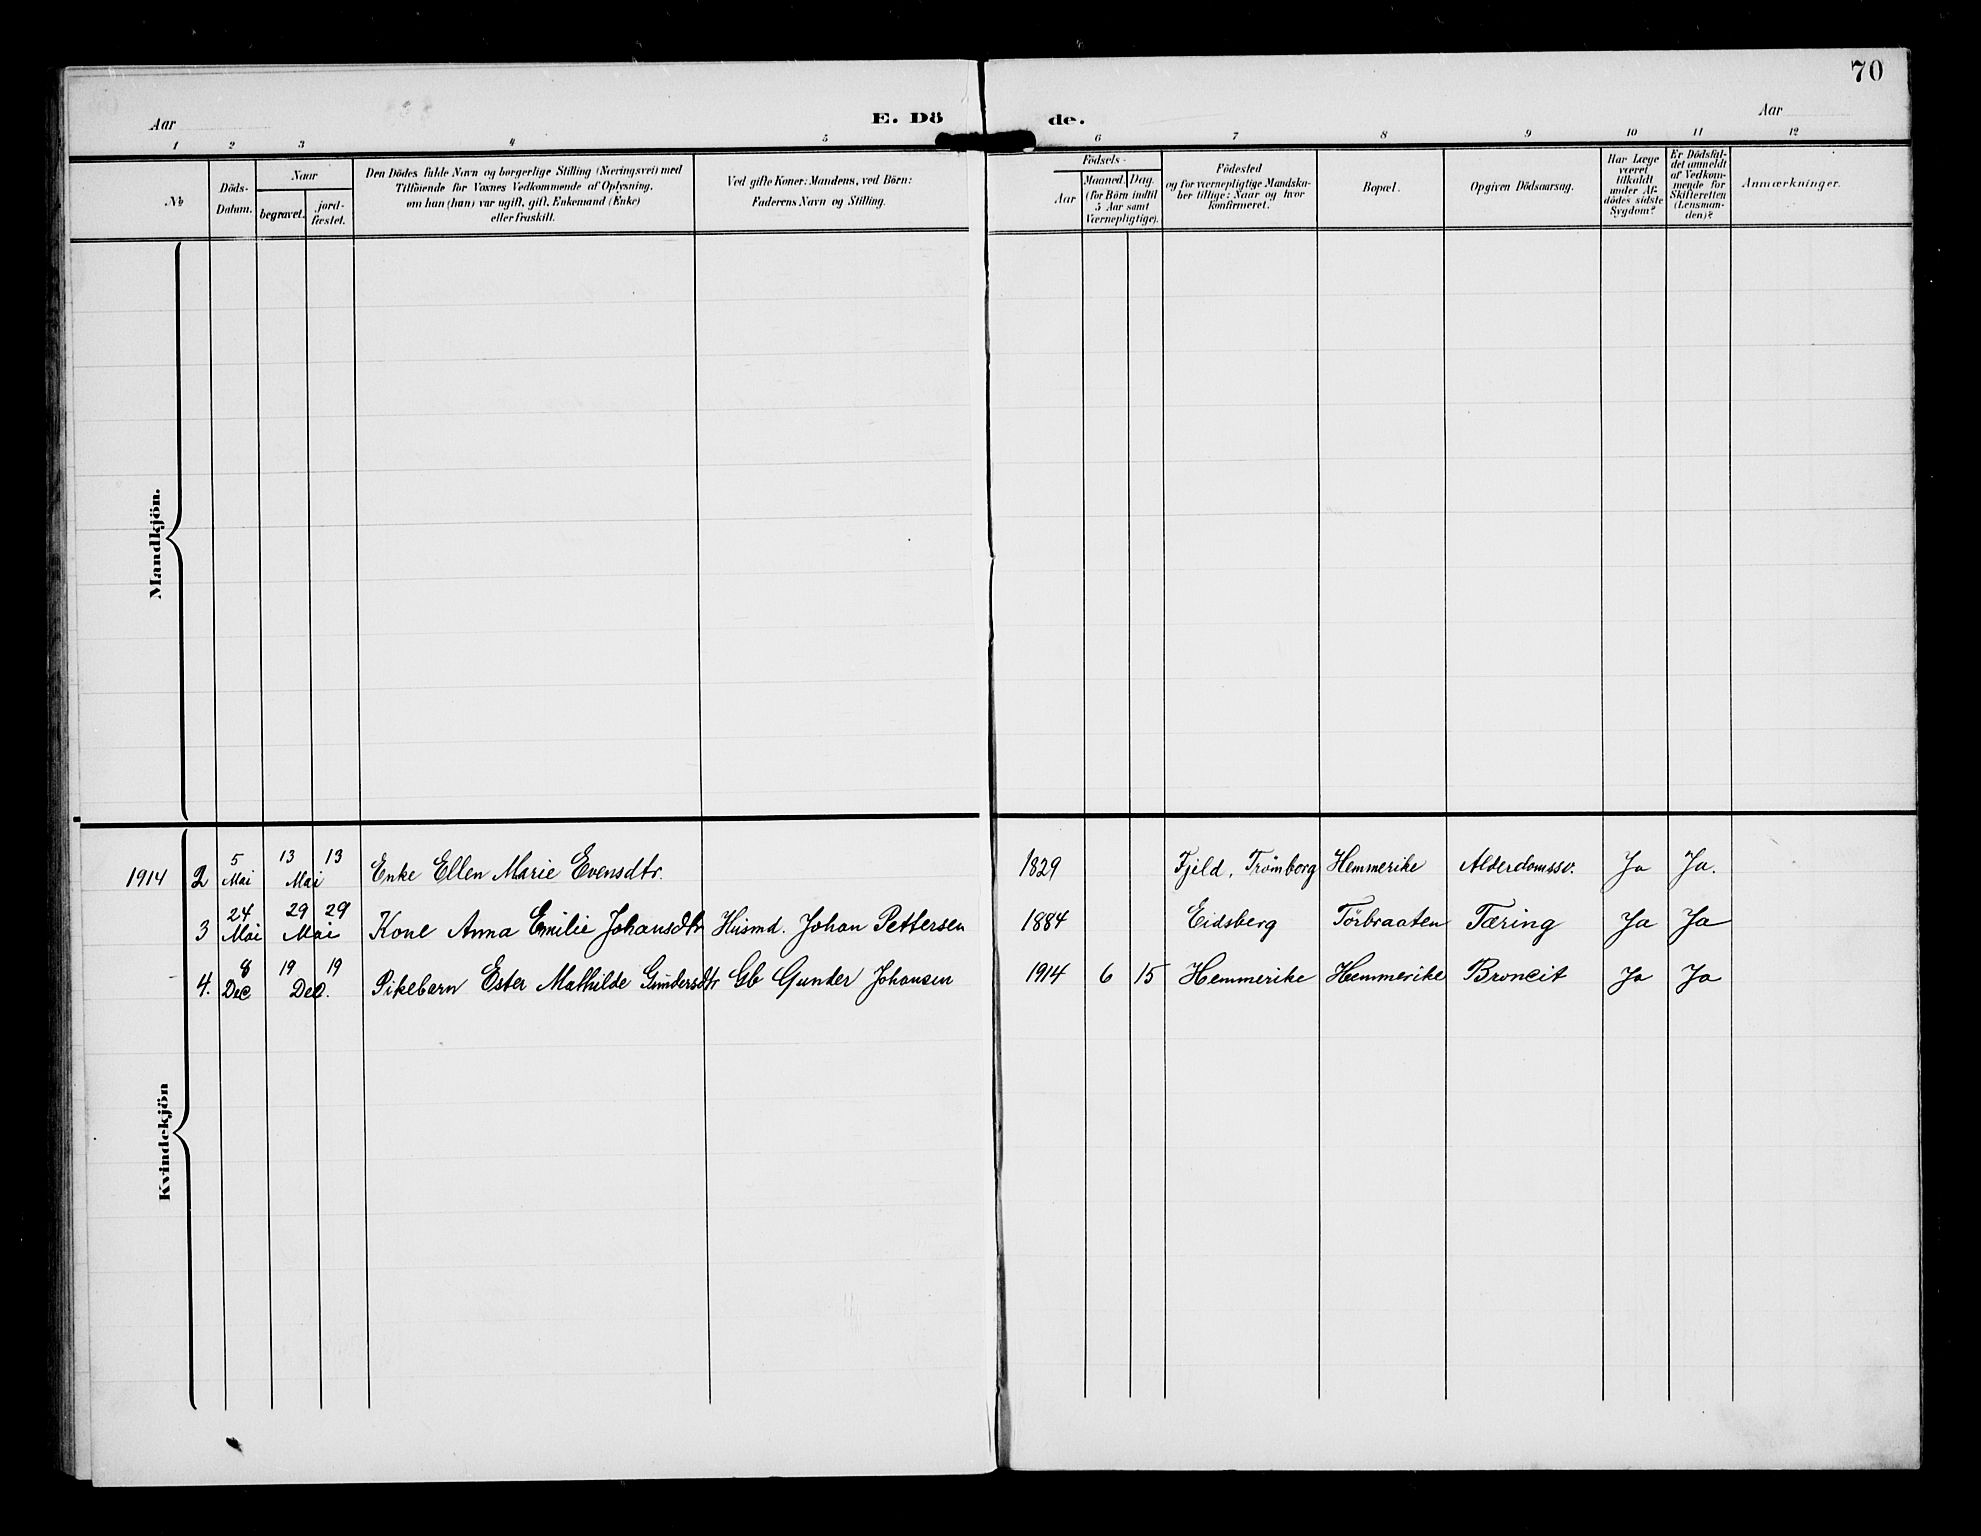 70
Aar
E. Dö de.
Aar
1 2 3 4 5 6 7 8 9 10 11 12
No
Döds-
Datum.
Naar
begravet.
jord-
fæstet.
Den Dödes fulde Navn og borgerlige Stilling (Næringsvei) med
Tilföiende for Voxnes Vedkommende af Oplysning,
om han (hun) var ugift, gift, Enkemand (Enke)
eller fraskilt.
Ved gifte Koner: Mandens, ved Börn:
Faderens Navn og Stilling.
Födsels-
Aar
Maaned. Dag.
(for Börn indtil
5 Aar samt
Værnepligtige).
Födested
og for værnepligtige Mandska-
ber tillige: Naar og hvor
konfirmeret.
Bopæl.
Opgiven Dödsaarsag.
Har Læge
været
tilkaldt
under Af-
dödes sidste
Sygdom?
Er Dödsfal-
det anmeldt
af Vedkom-
mende for
Skifteretten
(Lensman-
den)?
Anmærkninger.
Mandkjön.
1914 2 5 Mai 13 13 Mai Enke Ellen Marie Evensdtr. 1829 Fjeld, Trømborg Hemmerike Alderdomssv. Ja Ja.
3 24 Mai 29 29 Mai Kone Anna Emilie Johansdtr Husmd. Johan Pettersen 1884 Eidsberg Törbraaten Tæring Ja Ja
4. 8 Dec 19 19 Dec. Pikebarn Ester Mathilde Gundersdtr Gb Gunder Johansen 1914 6 15 Hemmerike Hemmerike Broncit Ja Ja
Kvindekjön